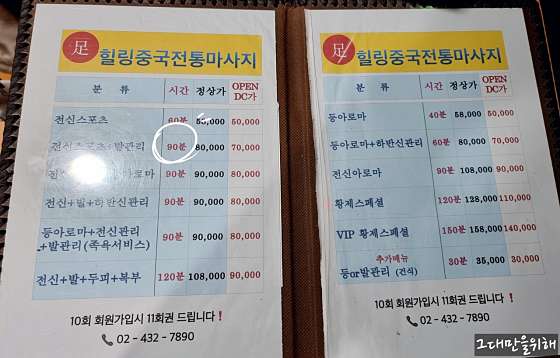 足 힐링중국전통마사지
분 류 시간 정상가 OPEN DC가
전신스포츠 60분 58,000 50,000
전신스포츠+발관리 90분 80,000 70,000
90분 90,000 80,000
전신+발+하반신관리 90분 90,000 80,000
등아로마+전신관리
+발관리(족욕서비스) 90분 90,000 80,000
전신+발+두피+복부 120분 108,000 90,000
10회 회원가입시 11회권 드립니다!
02 - 432 - 7890
足 힐링중국전통마사지
분 류 시간 정상가 OPEN DC가
등아로마 40분 58,000 50,000
등아로마+하반신관리 60분 80,000 70,000
전신아로마 90분 108,000 90,000
황제스페셜 120분 128,000 110,000
VIP 황제스페셜 150분 158,000 140,000
추가메뉴
등or발관리 (건식) 30분 35,000 30,000
10회 회원가입시 11회권 드립니다!
02 - 432 - 7890
그대만을위해